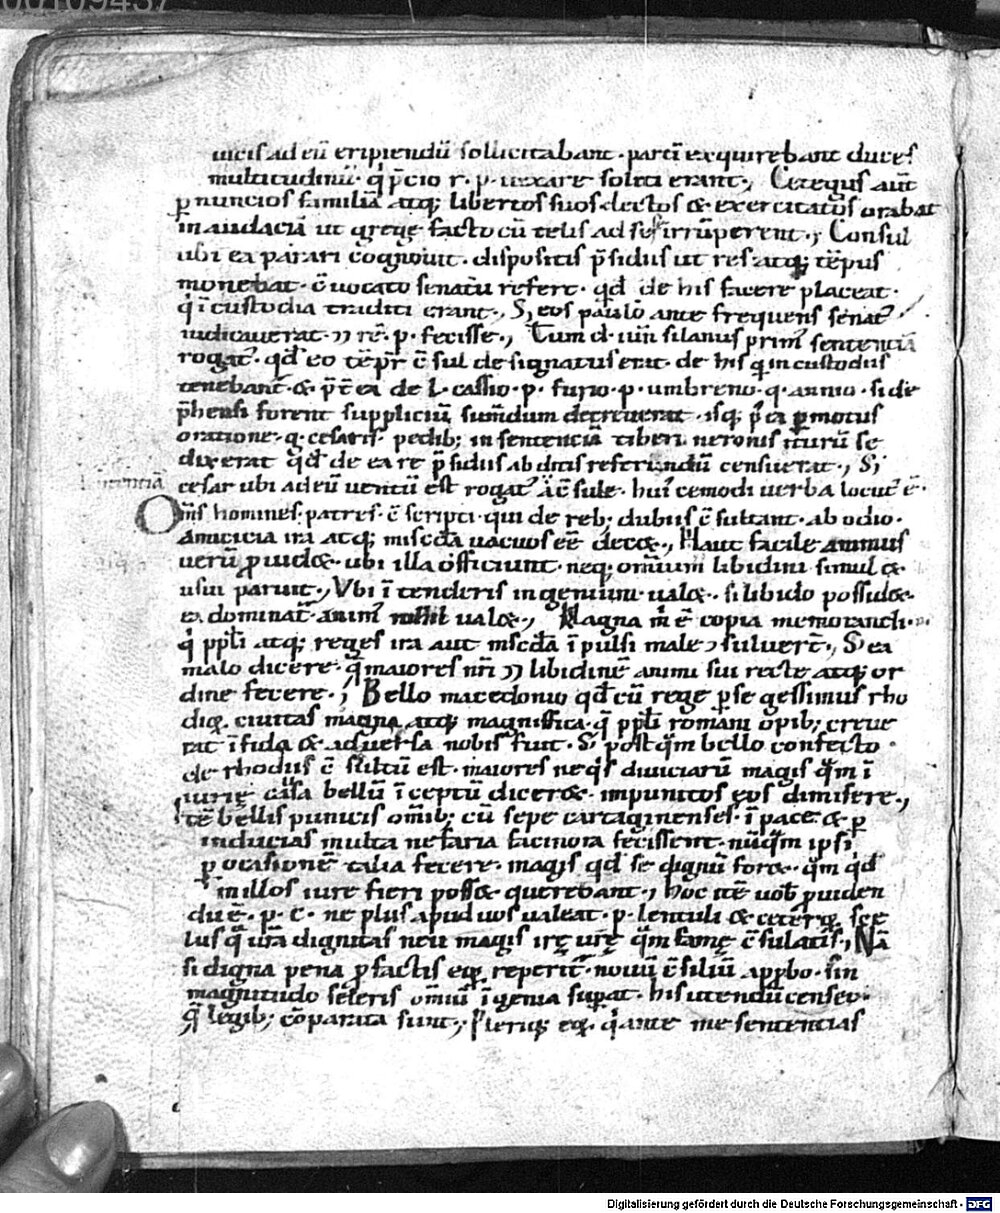 00109437
uicis ad eū eripiendū sollicitabant · partī exquirebant duces
multitudinū · q̄ p̄cio r · p · uexare soliti erant ·, Cetegus aūt
ꝑ nuncios familiā atq; libertos suos lectos & exercitatos orabat
in audaciā ut grege facto cū telis ad sese irrūperent ·, Consul
ubi ea parari cognouit · dispositis p̄sidiis ut res atq; tēpus
monebat · c̄uocato senatu refert · qd̄ de his facere placeat ·
q̄ ī custodia traditi erant ·, S; eos paulo ante frequens senat᷒
iudicauerat ↄͻ rē · p · fecisse ·, Tum d · iuñ silanus prim᷒ sententiā
rogat᷒ · qd̄ eo tēpr̄ c̄sul designatus erat · de his q̄ in custodiis
tenebant᷒ · & p̄t̄ea de l · cassio · p · furio · p · umbreno · q · annio · si de
p̄hensi forent suppliciū sumdum decreuerat · isq; p̄ea ꝑmotus
oratione · g · cesaris · pedib; in sententiā tiberi neronis iturū se
dixerat qd̄ de ea re p̄sidiis abditis referundū censuerat ·, S;
cesar ubi ad eū uentū est rogat᷒ a c̄sule · hui᷒cemodi uerba locut᷒ ē ·
Om̄s homines · patres · c̄scripti · qui de reb; dubiis c̄sultant · ab odio ·
amicicia ira atq; mis̄cdā uacuos eē dec& ·, Haut facile animus
uerū ꝓuid& · ubi illa officiunt · neq; omium libidini simul &
usui paruit ·, Vbi ītenderis ingenium ual& · si libido possid&
ea dominat᷒ · anim᷒ nihil ual& ·, Magna m̄ ē copia memorandi ·
q̄ ppl̄i atq; reges ira aut mis̄cdā īpulsi male ↄsuluerī̄t ·, S; ea
malo dicere · q̄ maiores nr̄i ↄͻ libidinē animi sui recte atq; or
dine fecere ·, Bello macedonio qd̄ cū rege ꝑse gessimus rho
diꝝ ciuitas magna atq; magnifica · q̄ ppl̄i romani opib; creue
rat īfida & aduersa nobis fuit · S; post qm̄ bello confecto ·
de rhodiis c̄sultū est · maiores ne q̄s diuiciarū magis qm̄ ī
iurię causa bellū īceptū dicer& · impunitos eos dimisere ·,
Itē bellis punicis om̄ib; cū sepe cartaginenses · ī pace & ꝑ
inducias multa nefaria facinora fecissent · nūqm̄ ipsi
ꝑ ocasionē talia fecere · magis qd̄ se dignū for& · qm̄ qd̄
in illos iure fieri poss& querebant ·, hoc itē uob̄ ꝓuiden
dū ē · p · c · ne plus apud uos ualeat · p · lentuli & ceterꝝ sce
lus q̄ ur̄a dignitas neu magis irę ur̄ę qm̄ famę c̄sulatis ·, Nā
si digna pena ꝓ factis eoꝝ reperit᷒ · nouū c̄siliū approbo · sin
magnitudo sceleris omiū īgenia suꝑat · his utendū censeo ·
q̄ legib; cōparata sunt ·, Pleriq; eoꝝ · q̄ ante me sentencias
Digitalisierung gefördert durch die Deutsche Forschungsgemeinschaft · DFG